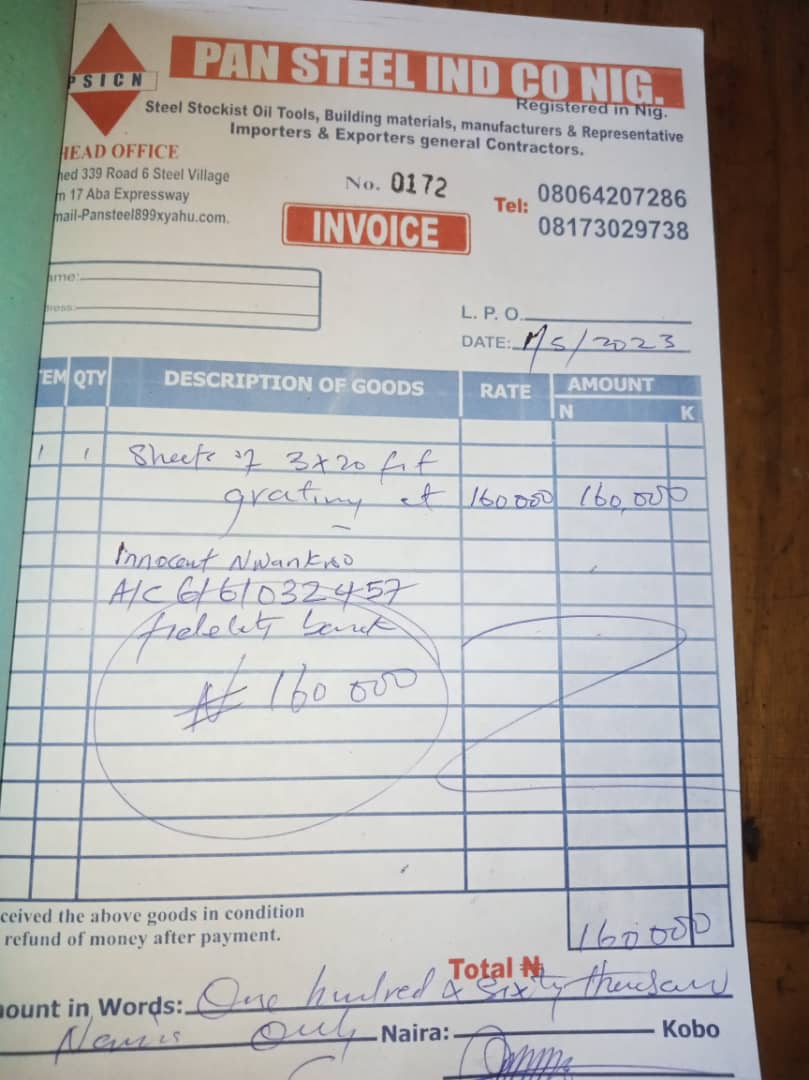 PSICN
PAN STEEL IND CO NIG.
Registered in Nig.
Steel Stockist Oil Tools, Building materials, manufacturers & Representative
Importers & Exporters general Contractors.
HEAD OFFICE
hed 339 Road 6 Steel Village
m 17 Aba Expressway
mail-Pansteel899xyahu.com.
No. 0172
Tel: 08064207286
08173029738
INVOICE
ame:
ress:
L. P. O.
DATE: 1/5/2023
EM QTY DESCRIPTION OF GOODS RATE AMOUNT
N K
1 1 Sheets of 3x20 fit
grating at 160 000 160,000
Innocent Nwankwo
A/C 6161032457
fidelity bank
₦ 160 000
ceived the above goods in condition
refund of money after payment.
160 000
Total ₦
ount in Words: One hundred & Sixty thousand
Only Naira: Kobo